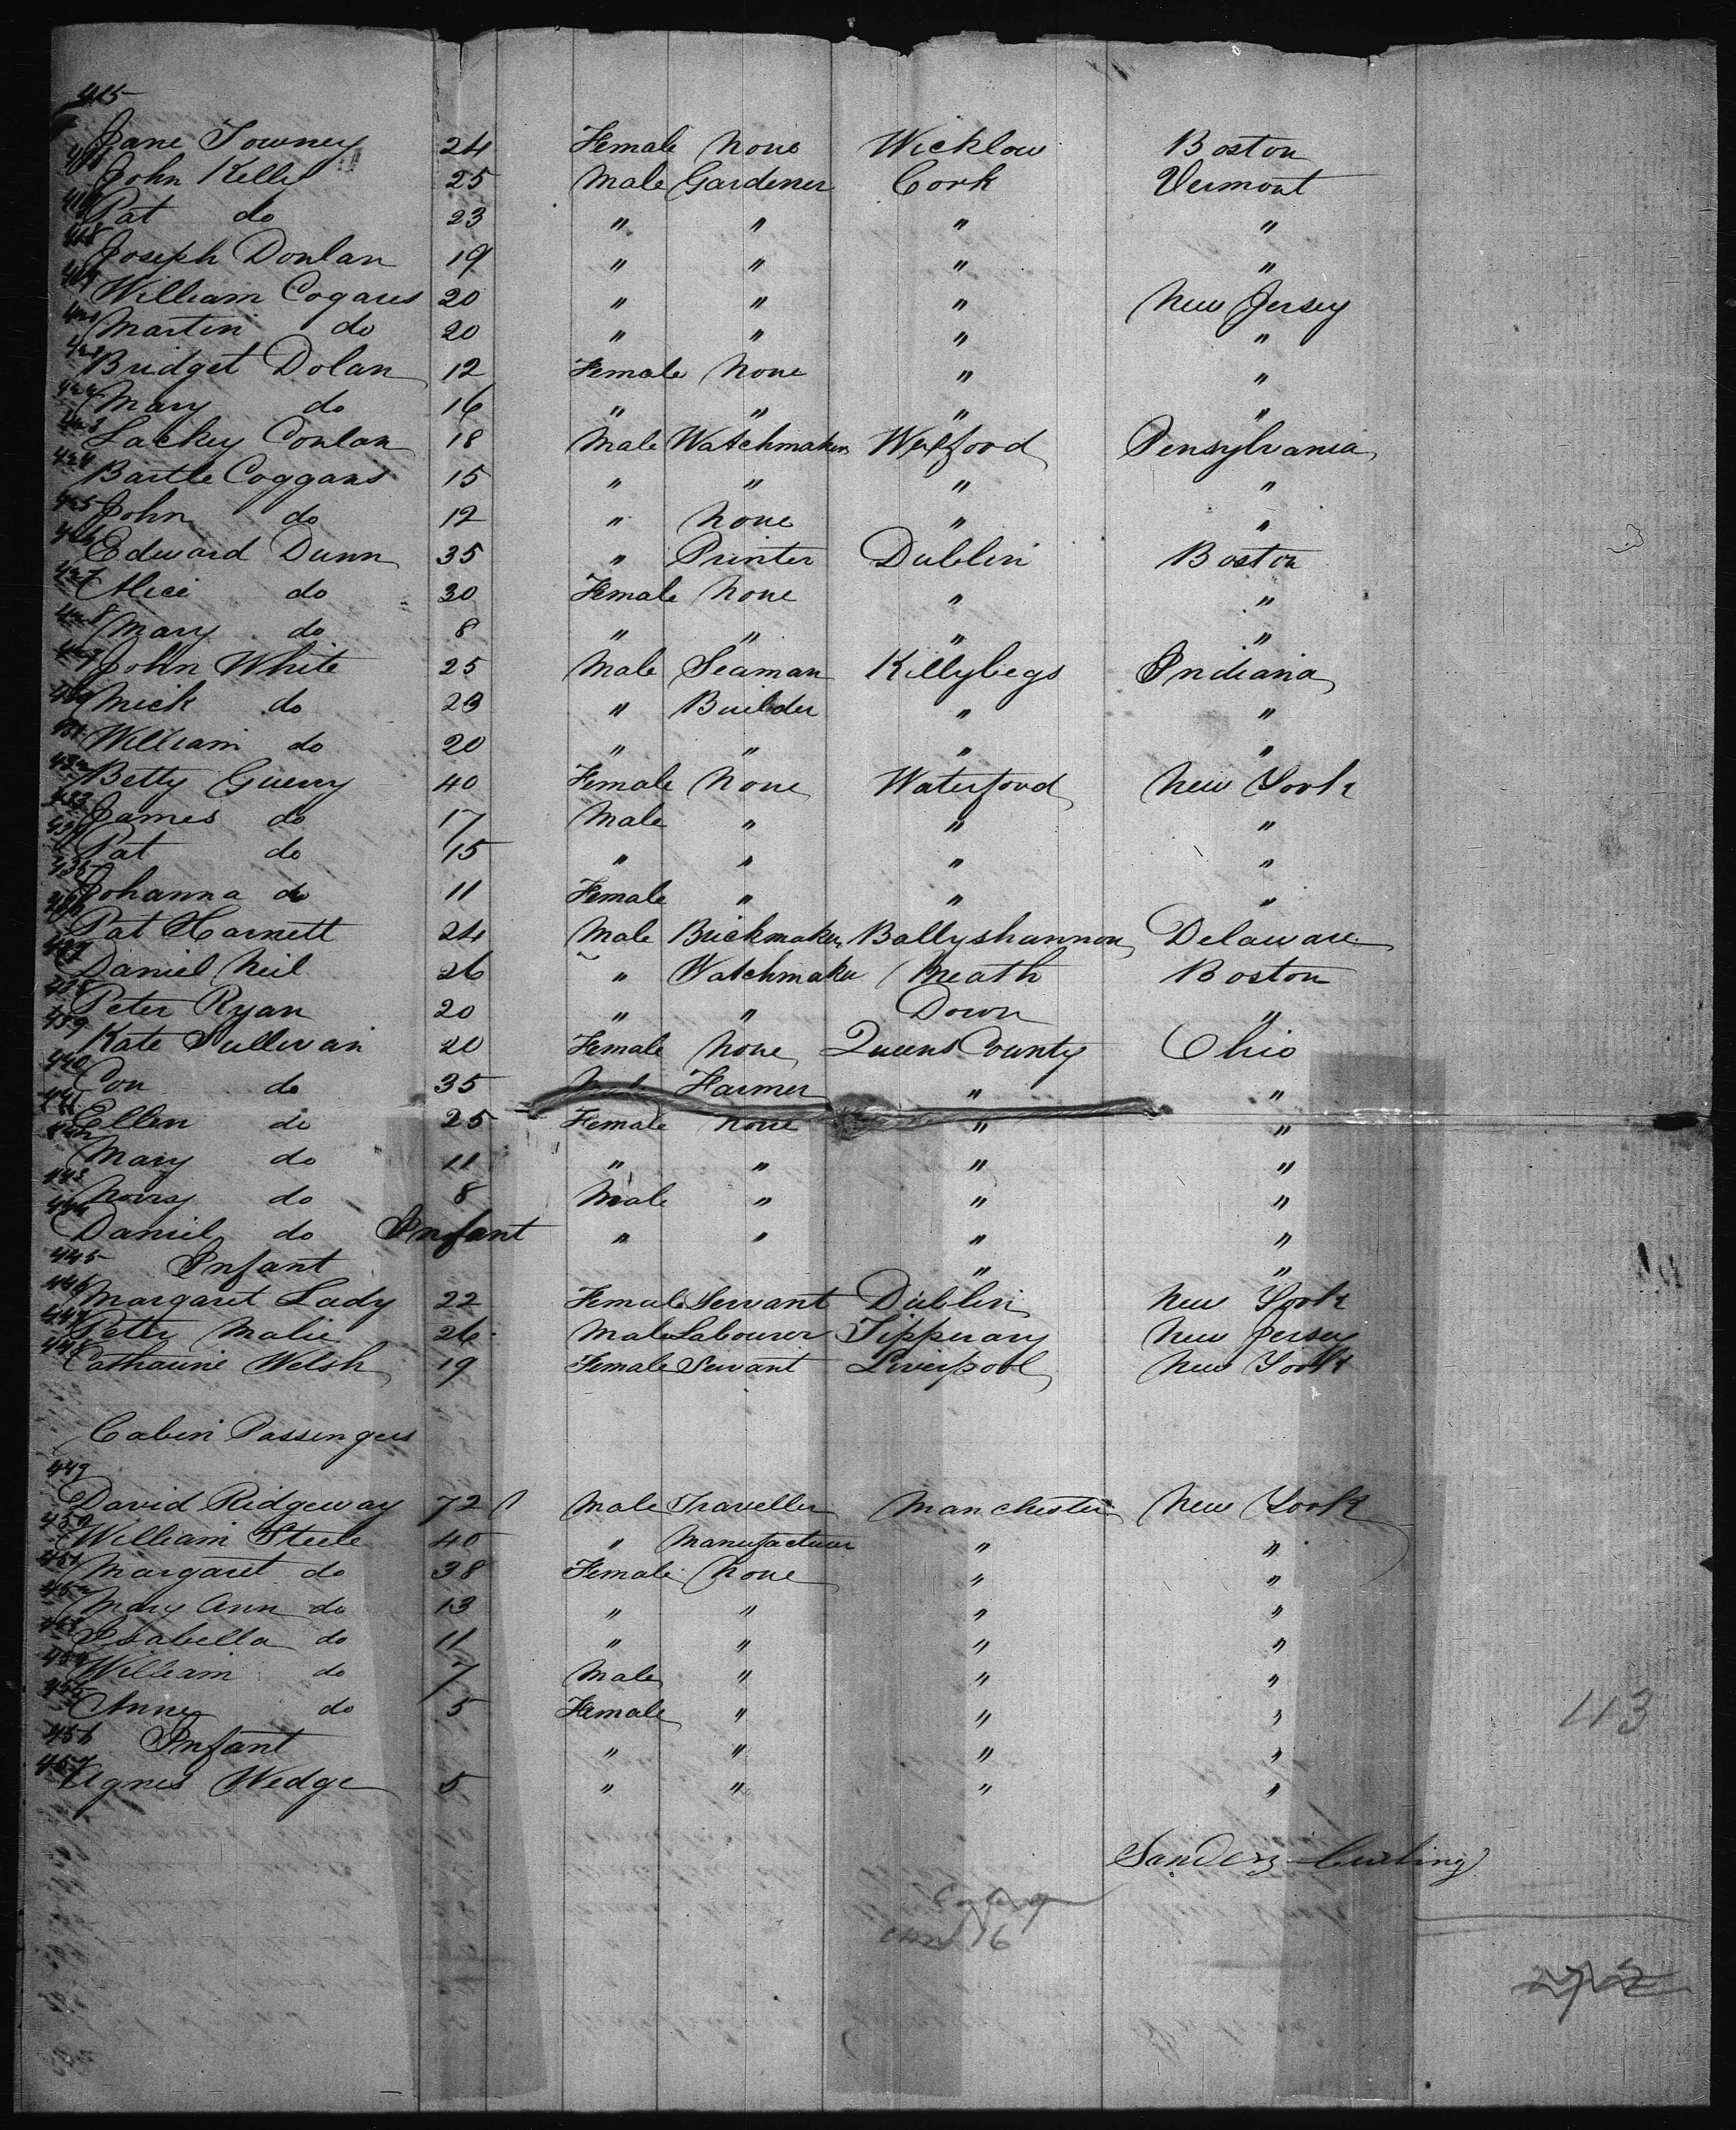 415
Jane Towney 24 Female None Wicklow Boston
416 John Kelly 25 Male Gardener Cork Vermont
417 Pat do 23 " " " "
418 Joseph Donlan 19 " " " "
419 William Cogans 20 " " " New Jersey
420 Martin do 20 " " " "
421 Bridget Dolan 12 Female None " "
422 Mary do 16 " " " "
423 Lackey Conlan 18 Male Watchmaker Wexford Pensylvania
424 Bartle Coggans 15 " " " "
425 John do 12 " None " "
426 Edward Dunn 35 " Printer Dublin Boston
427 Alice do 30 Female None " "
428 Mary do 8 " " " "
429 John White 25 Male Seaman Killybegs Indiana
430 Mick do 23 " Builder " "
431 William do 20 " " " "
432 Betty Guerry 40 Female None Waterford New York
433 James do 17 Male " " "
434 Pat do 15 " " " "
435 Johanna do 11 Female " " "
436 Pat Harnett 24 Male Brickmaker Ballyshannon Delaware
437 Daniel Neil 26 " Watchmaker Meath Boston
438 Peter Ryan 20 " " Down "
439 Kate Sullivan 20 Female None Queens County Ohio
440 Con do 35 Male Farmer " "
441 Ellen do 25 Female None " "
442 Mary do 11 " " " "
443 do 8 Male " " "
444 Daniel do Infant " " " "
445 Infant " "
446 Margaret Lady 22 Female Servant Dublin New York
447 Peter Malie 26 Male Labourer Tipperary New Jersey
448 Catharine Welsh 19 Female Servant Liverpool New York
Cabin Passengers
449
David Ridgeway 72 Male Traveller Manchester New York
450 William Steele 40 " Manufacturer " "
451 Margaret do 38 Female None " "
452 Mary Ann do 13 " " " "
453 Isabella do 11 " " " "
454 William do 7 Male " " "
455 Anne do 5 Female " " "
456 Infant " " " "
457 Agnes Wedge 5 " " " "
43
Sanders Curling
16